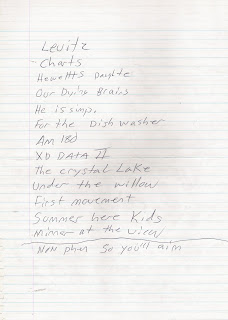 Levitz
Charts
Hewletts Daughte
Our Dying Brains
He is simp,
For the Dishwasher
Am 180
XD DATA II
the crystal Lake
Under the willow
First movement
Summer here Kids
Minner at the view
So you'll aim